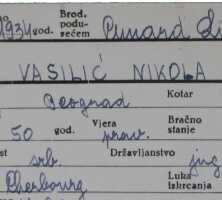 no 1934 god. Brod. podu-
sećem Cunard Li
VASILIĆ NIKOLA
Beograd Kotar
50 god. Vjera prav. Bračno
stanje
st srb. Državljanstvo jug
Cherbourg Luka
iskrcanja